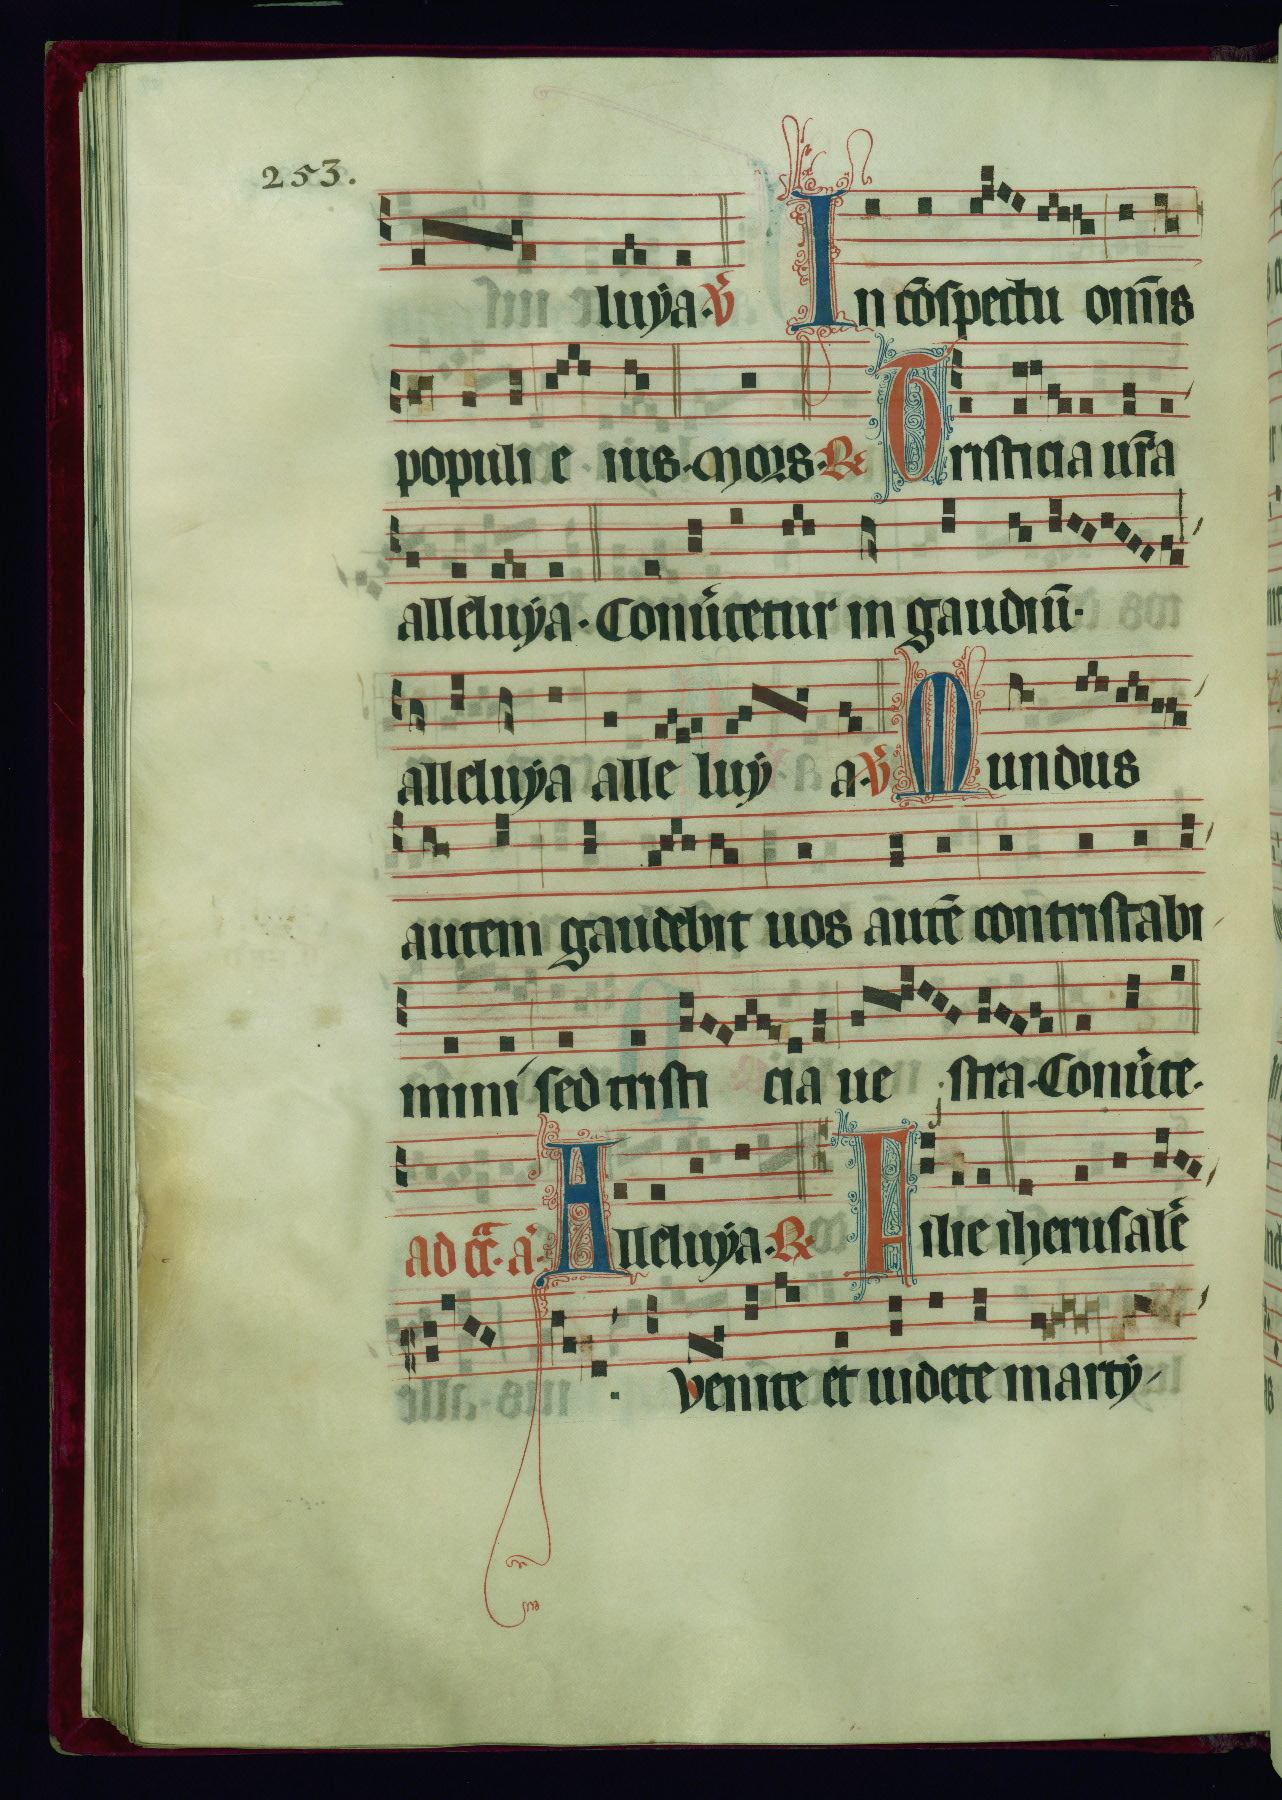 253.
luÿa · ℣ In cōspectu om̄is
populi e ius · Mors · ℞ Tristicia ur̄a
alleluÿa · Conu̾tetur in gaudiū ·
alleluÿa alle luÿ a · ℣ Mundus
autem gaudebit uos autē contristabi
mini sed tristi cia ue stra · Conu̾te ·
ad cc̄a · a̅ · Alleluÿa · ℞ Filie iherusalē
venite et uidete martÿ